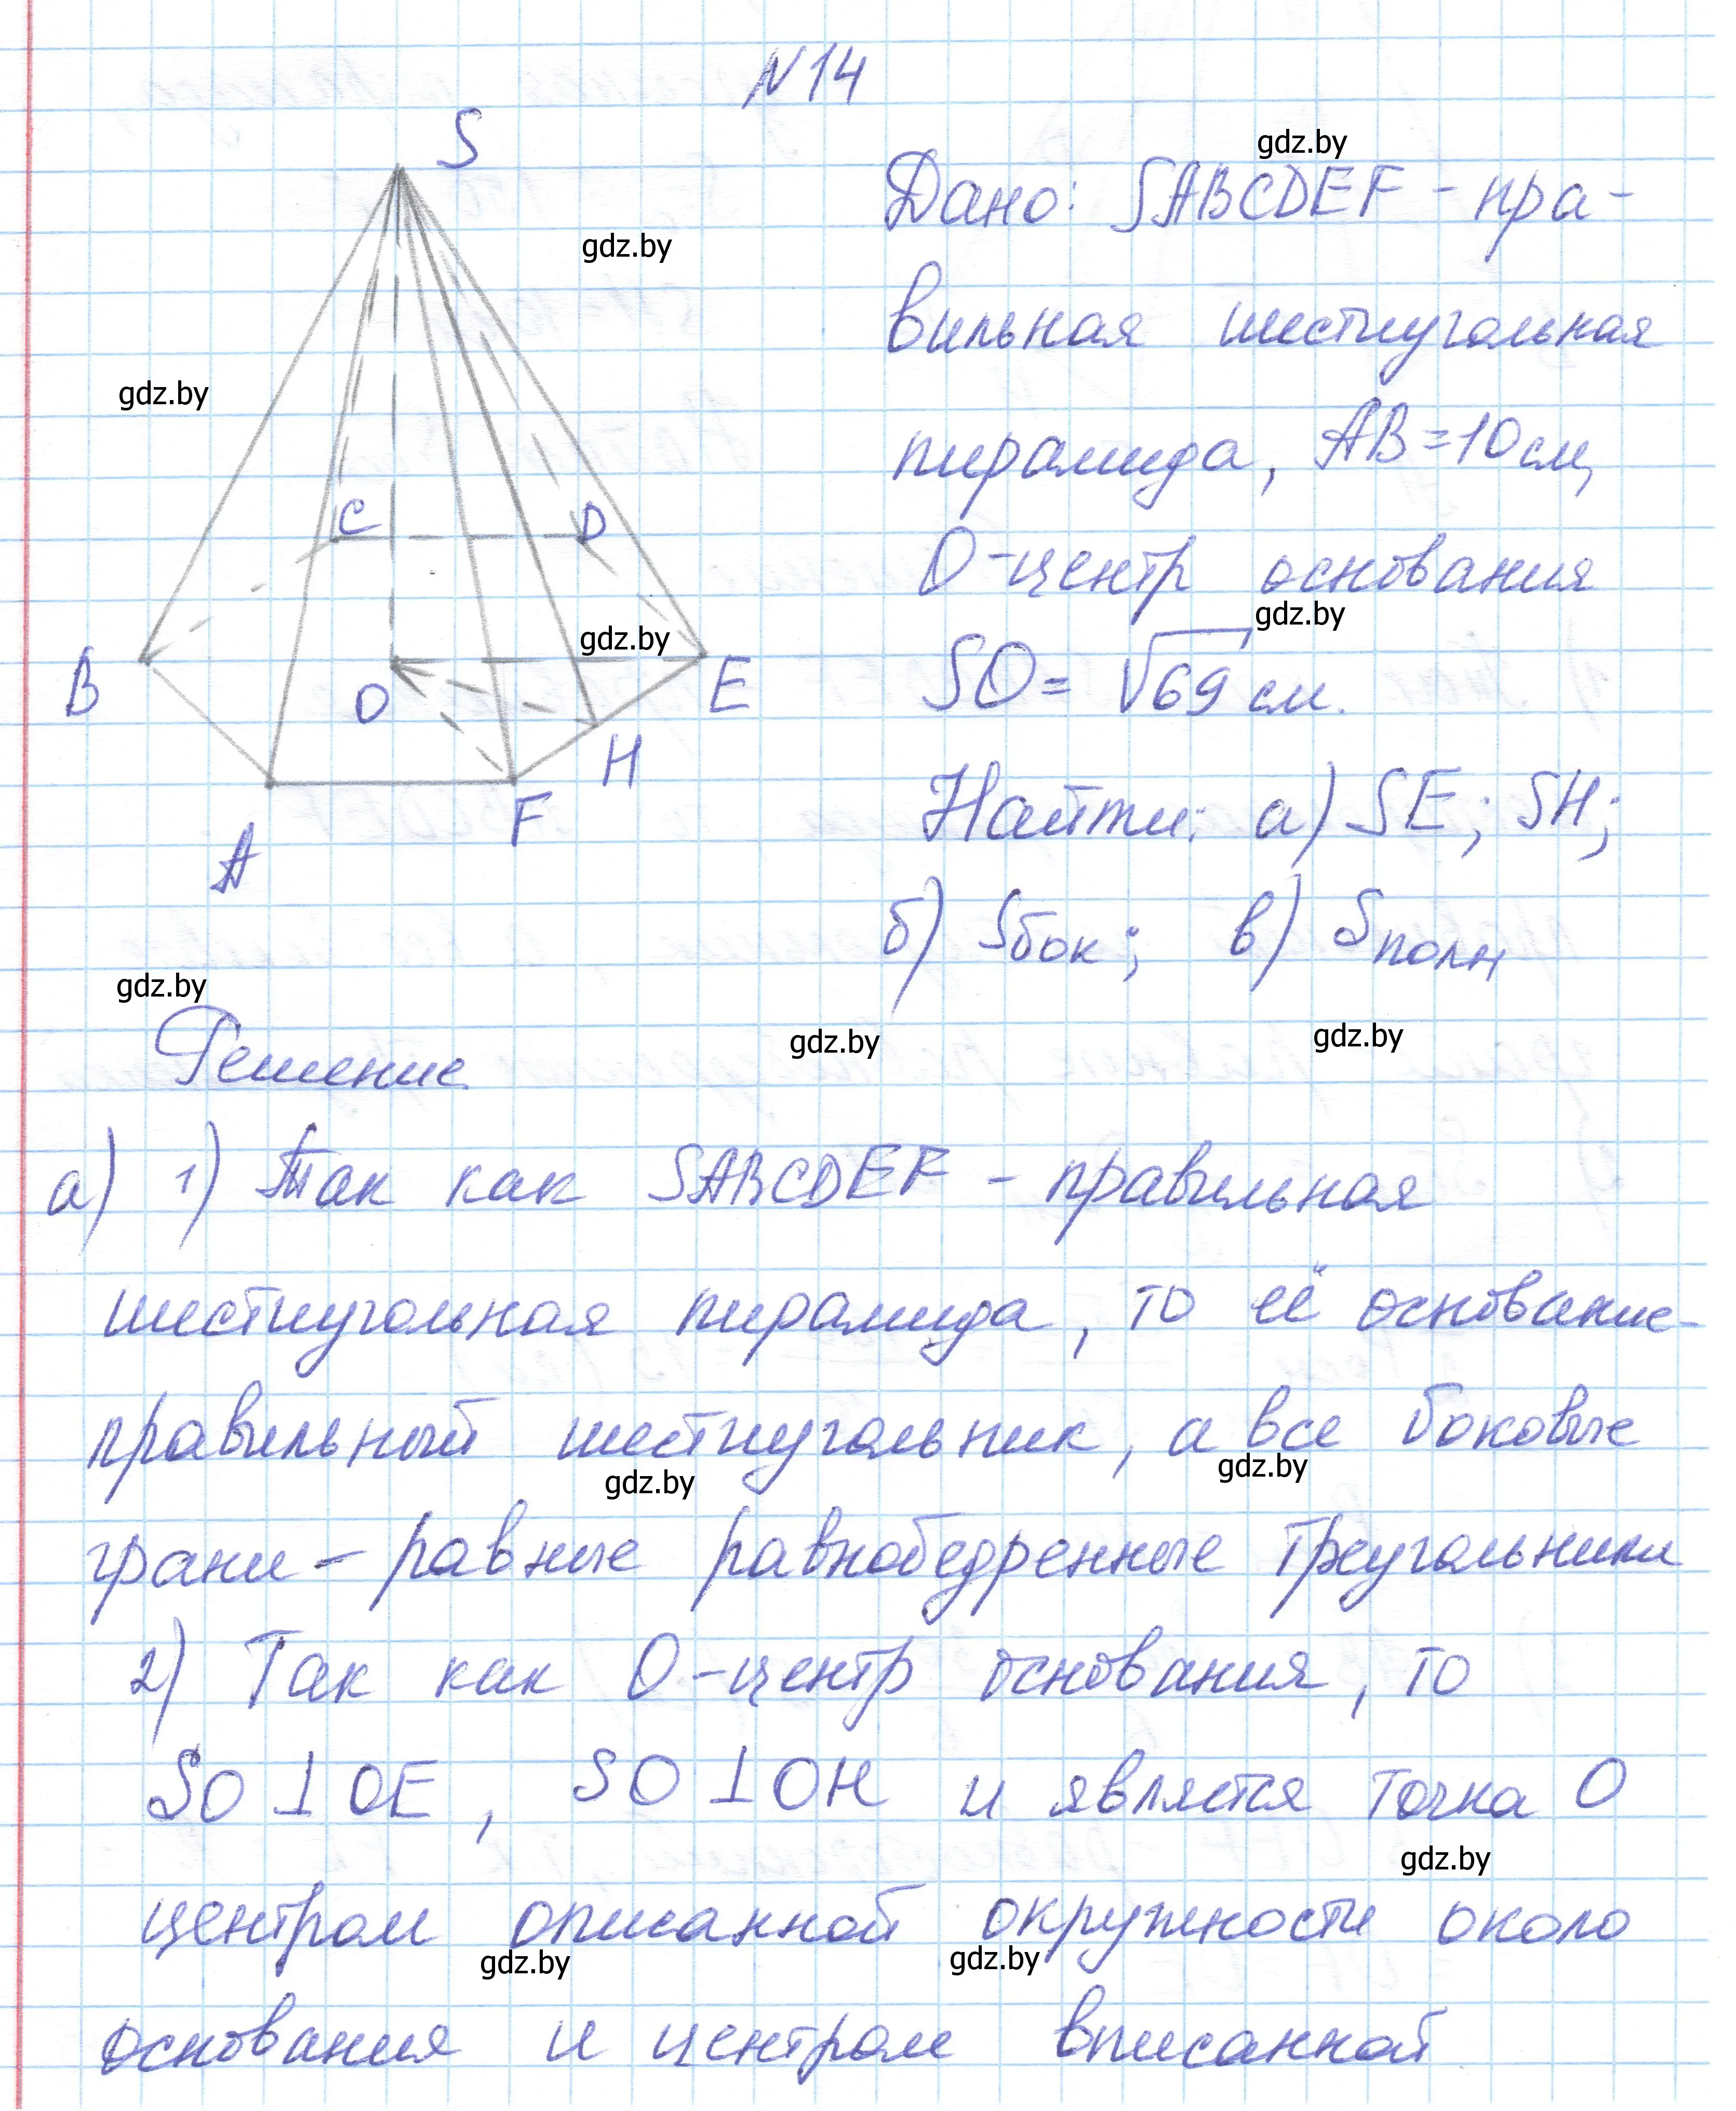 N14
S
gdz.by
Дано: SABCDEF - пра-
gdz.by
вильная шестиугольная
gdz.by
пирамида, AB = 10 см,
C D
О-центр основания
gdz.by
gdz.by
SO = √69 см.
B O E
H
Найти: а) SE; SH;
F
A
б) Sбок; в) Sполн
gdz.by
gdz.by
gdz.by
Решение
а) 1) Так как SABCDEF - правильная
шестиугольная пирамида, то её основание-
правильный шестиугольник, а все боковые
gdz.by
gdz.by
грани - равные равнобедренные треугольники
2) Так как О-центр основания, то
SO ⊥ OE, SO ⊥ OH и является точка О
gdz.by
центром описанной окружности около
gdz.by
gdz.by
основания и центром вписанной